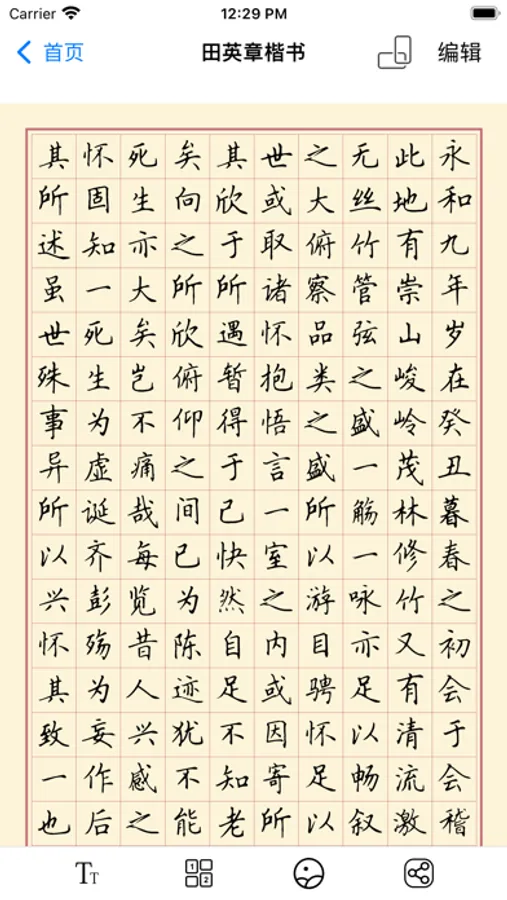 Carrier 12:29 PM
首页 田英章楷书 编辑
永和九年岁在癸丑暮春之初会于会稽
此地有崇山峻岭茂林修竹又有清流激
无丝竹管弦之盛一觞一咏亦足以畅叙
之大俯察品类之盛所以游目骋怀足以
世或取诸怀抱悟言一室之内或因寄所
其欣于所遇暂得于己快然自足不知老
矣向之所欣俯仰之间已为陈迹犹不能
死生亦大矣岂不痛哉每览昔人兴感之
怀固知一死生为虚诞齐彭殇为妄作后
其所述虽世殊事异所以兴怀其致一也
TT 1 2